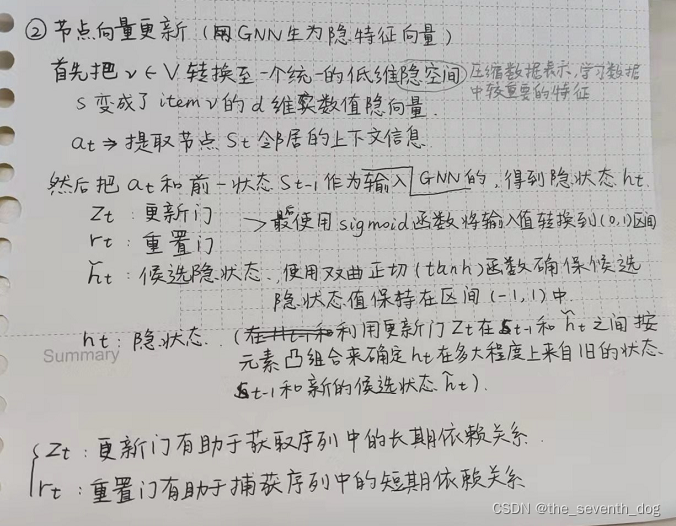 ② 节点向量更新（用GNN生为隐特征向量）
首先把 v∈V 转换至一个统一的低维隐空间 压缩数据表示，学习数据
中较重要的特征
s 变成了 item v 的 d 维实数值隐向量．
at ⇒ 提取节点 St 邻居的上下文信息．
然后把 at 和前一状态 St-1 作为输入 GNN的，得到隐状态 ht．
Zt：更新门
rt：重置门
> 最后使用 sigmoid 函数将输入值转换到(0,1)区间
h̃t：候选隐状态．，使用双曲正切（tanh）函数确保候选
隐状态值保持在区间（-1,1）中．
ht：隐状态．（在Ht-1和利用更新门Zt在St-1和h̃t之间按
元素凸组合来确定ht在多大程度上来自旧的状态
St-1和新的候选状态h̃t）．
Summary
Zt：更新门有助于获取序列中的长期依赖关系．
rt：重置门有助于捕获序列中的短期依赖关系
CSDN @the_seventh_dog